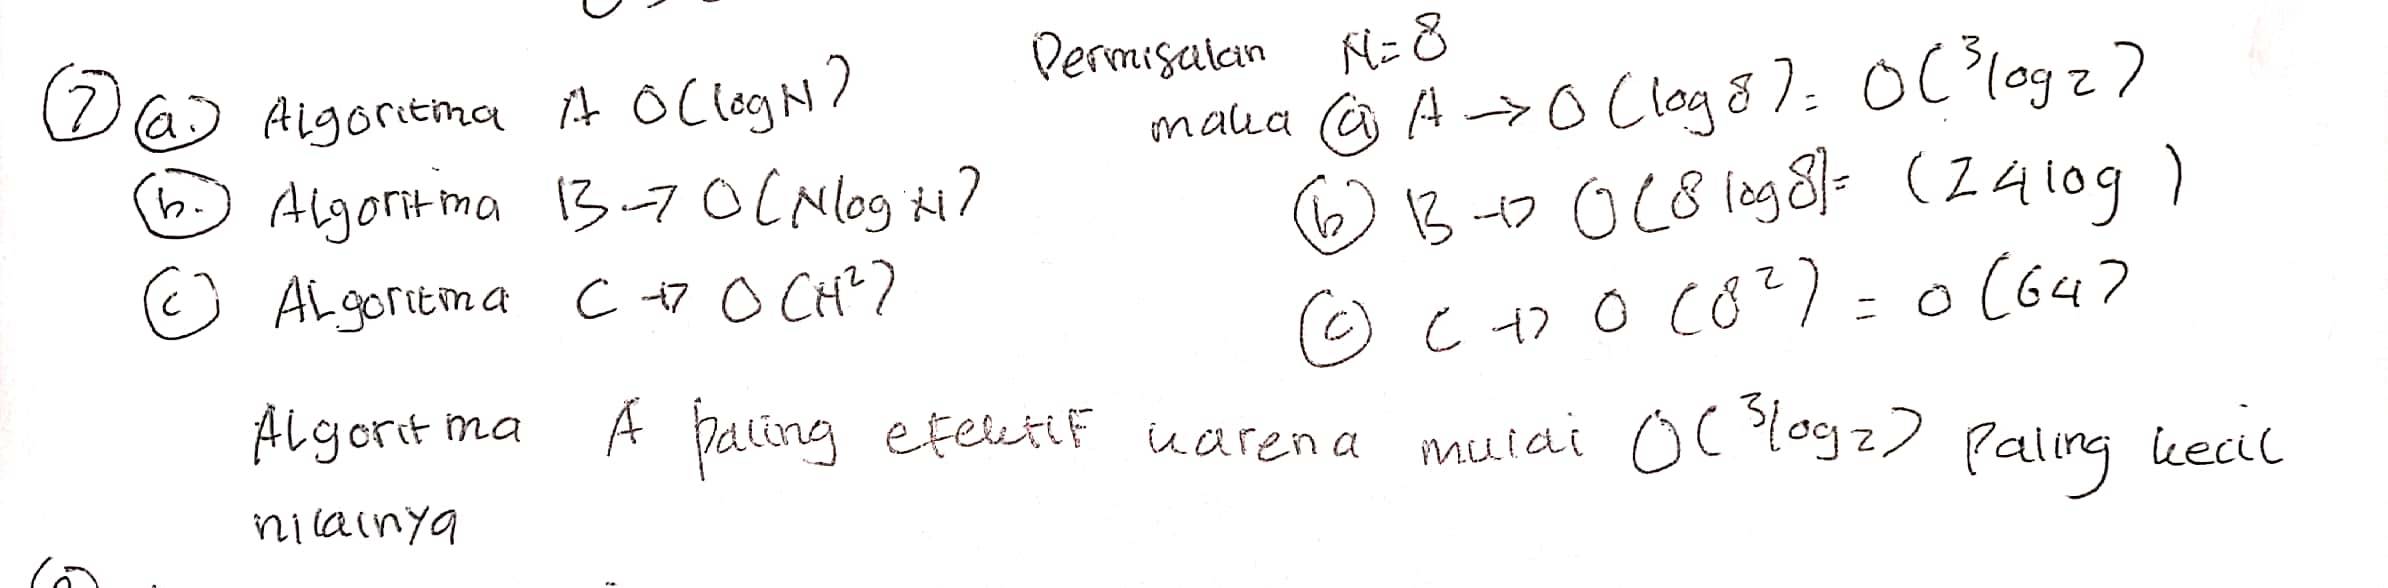 ⑦ ⓐ. Algoritma A O(log N)
ⓑ. Algoritma B → O(N log N)
ⓒ Algoritma C → O(N²)
Permisalan N=8
maka ⓐ A → O(log 8) = O(³log 2)
ⓑ B → O(8 log 8) = (24 log )
ⓒ C → O(8²) = O(64)
Algoritma A paling efektif karena mulai O(³log 2) Paling kecil
nilainya